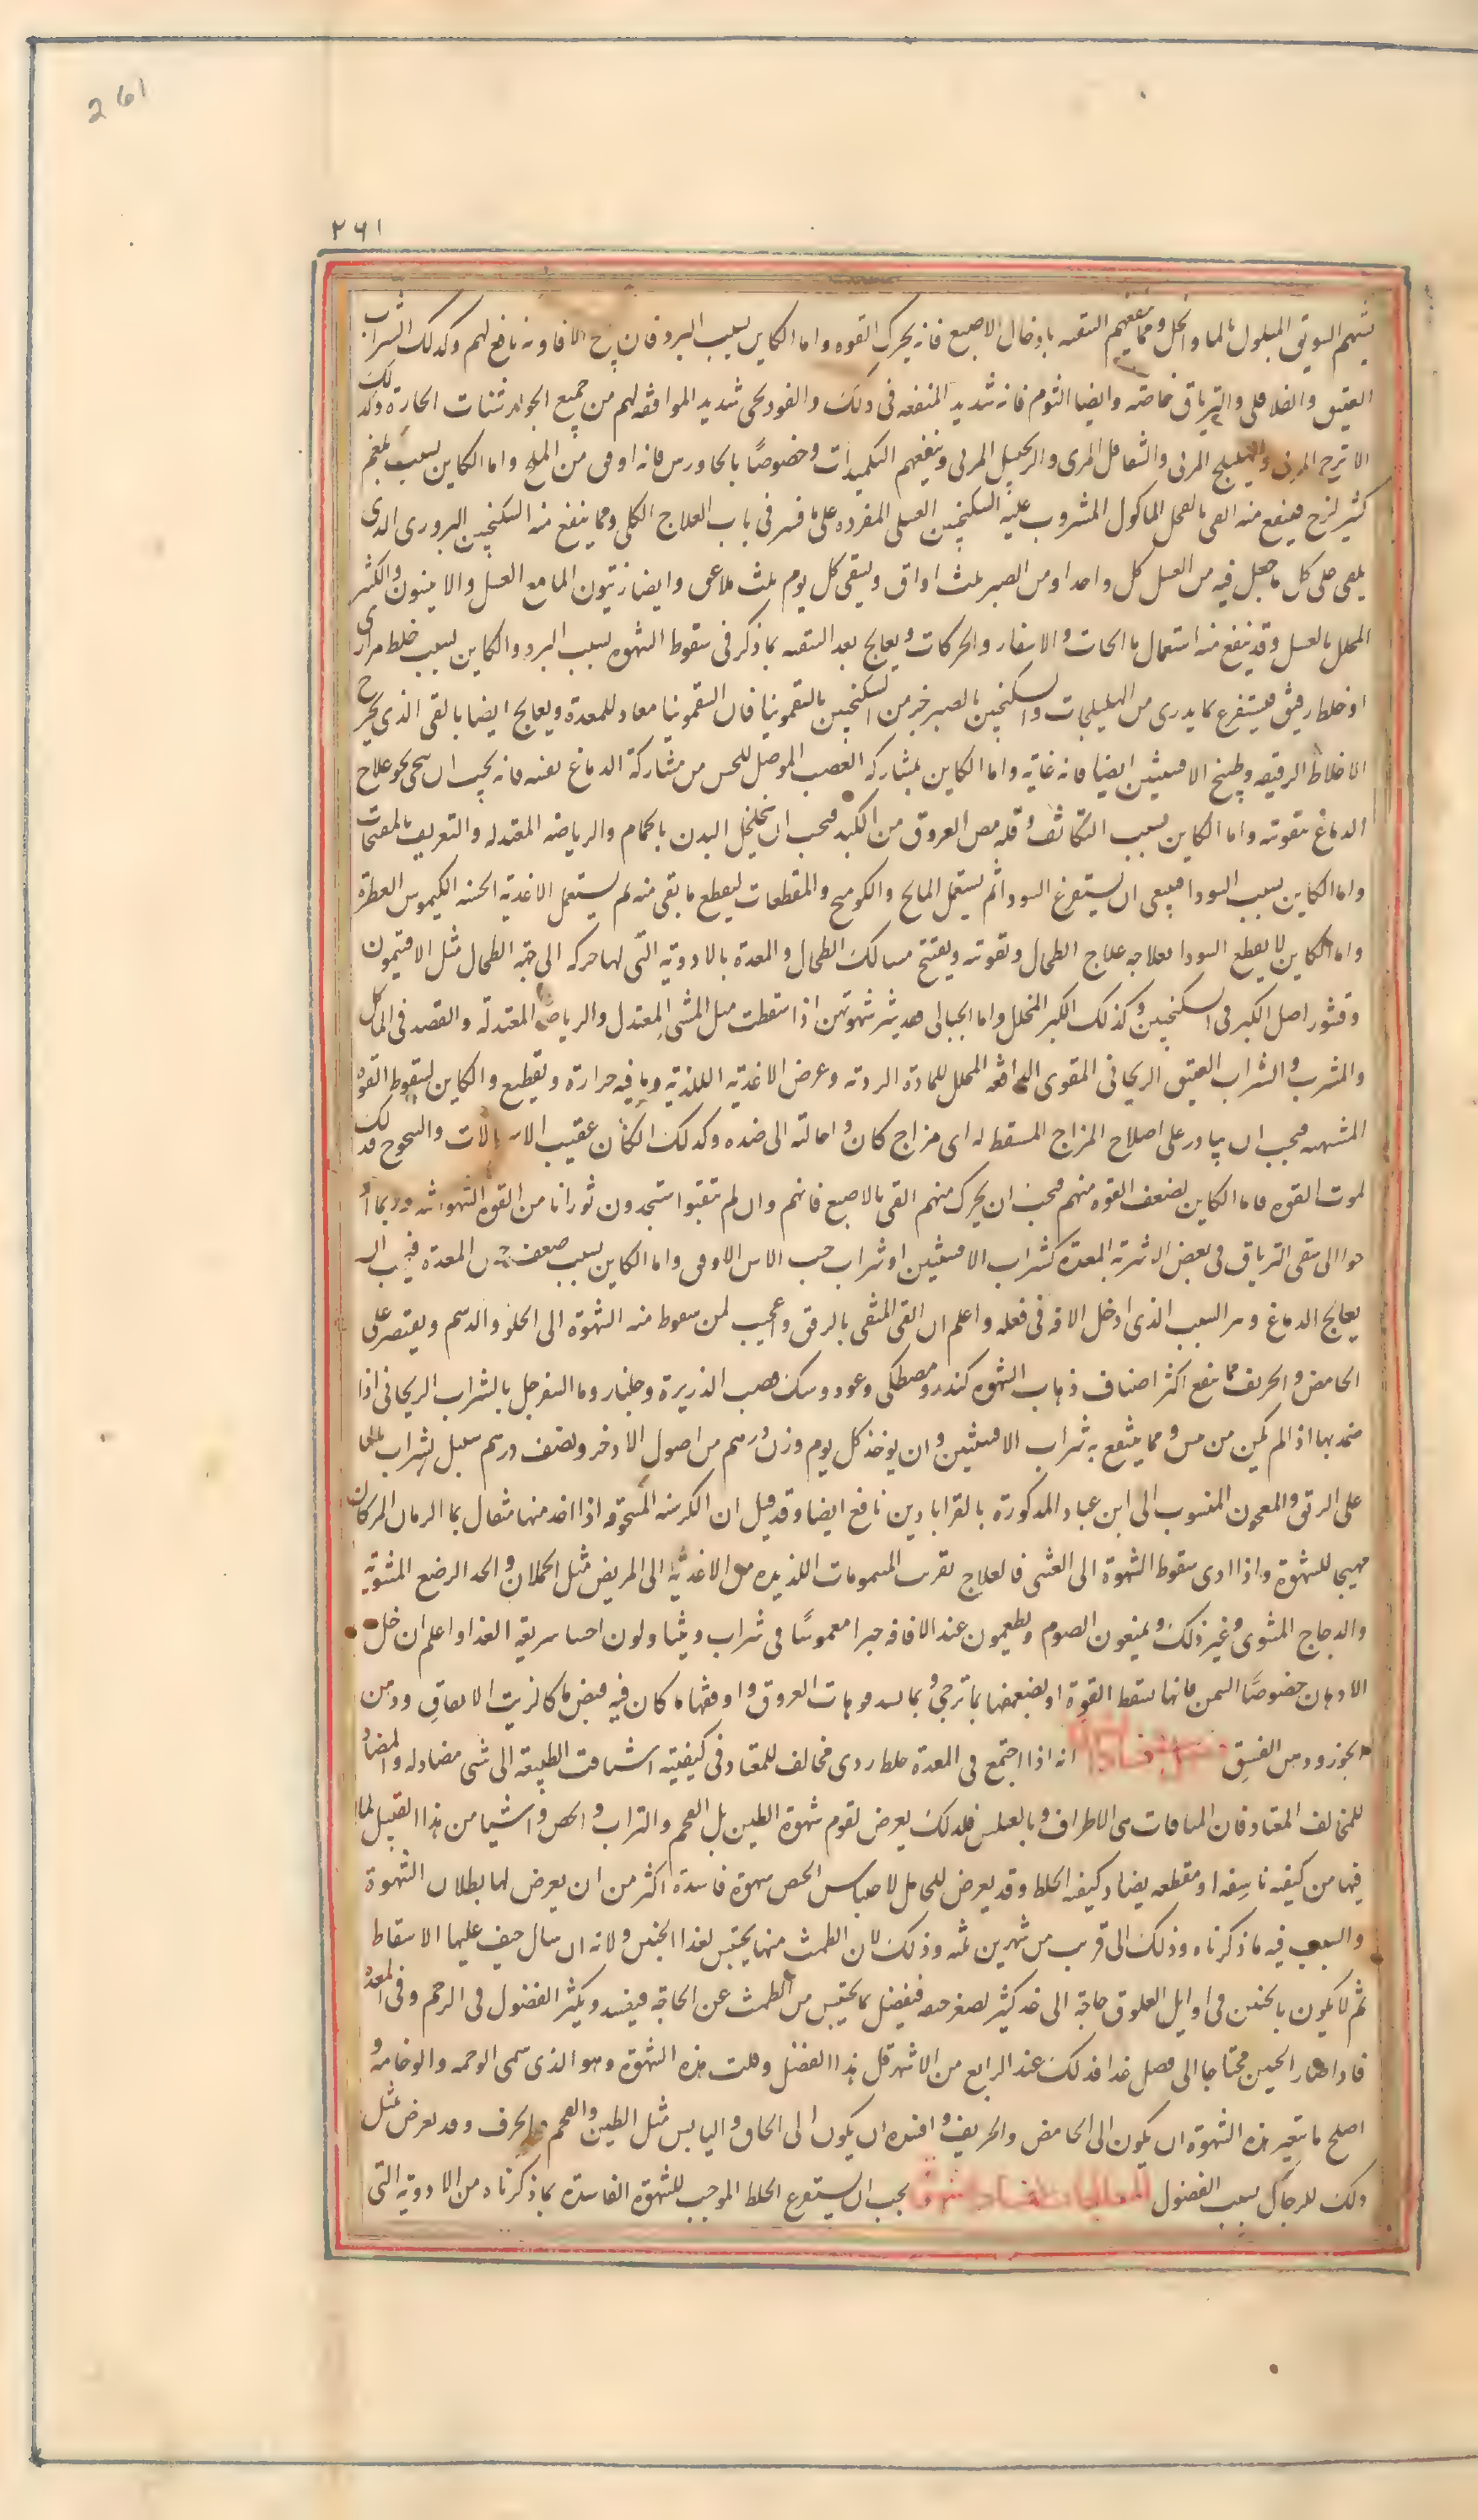 261
۲۶۱
يشهم السويق المبلول بالماء والخل ومما ينفعهم التقيه بادخال الاصبع فانه يحرك القوه واما الكاين بسبب البرد فان الافاويه نافع لهم وكذلك الشراب
العتيق والفلافلى والترياق خاصه وايضا الثوم فانه شديد المنفعه فى ذلك والفودنجى شديد الموافقه لهم من جميع الجوارشنات الحارة وكذلك
الاترج المربى والهليلج المربى والشقاقل المربى والزنجبيل المربى وينفعهم التكميدات وخصوصًا بالجاورس فانه اوفى من الملح واما الكاين بسبب بلغم
كثير لزج فينفع منه القى بالفجل الماكول المشروب عليه السكنجبين العسلى المفرده على ما فسر فى باب العلاج الكلى ومما ينفع منه السكنجبين البزورى الذى
يلقى على كل ما جعل فيه من العسل كل واحد اومن الصبر ثلث اواق ويسقى كل يوم ثلث ملاعق وايضا زيتون الما مع العسل والانيسون والكبر
المخلل بالعسل وقد ينفع منه استعمال ماء الحمات والاسفار والحركات ويعالج بعد التنقيه بما ذكر فى سقوط الشهوه بسبب البرد والكاين بسبب خلط مرارى
او خلط رقيق فيستفرغ بما يدرى من الهليلجات والسكنجبين بالصبر خير من السكنجبين بالسقمونيا فان السقمونيا معاد للمعدة ويعالج ايضا بالقى الذى يخرج
الاخلاط الرقيقه وطبيخ الافسنتين ايضا فانه غاية واما الكاين بمشاركه العصب الموصل للحس من مشاركة الدماغ نفسه فانه يجب ان ينحى نحو علاج
الدماغ وتقويته واما الكاين بسبب التكاثف وقله مص العروق من الكبد فيجب ان يخلخل البدن بالحمام والرياضه المعتدله والتعريق بالمفتحات
واما الكاين بسبب السودا فينبغى ان يستفرغ السودا ثم يستعمل المالح والكواميخ والمقطعات ليقطع ما بقى منه ثم يستعمل الاغذية الحسنه الكيموس العطرة
واما الكاين لانقطع السودا فعلاجه علاج الطحال وتقويته وتفتيح مسالك الطحال والمعدة بالادوية التى لها حركه الى جهة الطحال مثل الافتيمون
وقشور اصل الكبر فى السكنجبين وكذلك الكبر المخلل واما الحبالى فقد يثير شهوتهن اذا سقطت مثل المشى المعتدل والرياضه المعتدلة والقصد فى الماكل
والمشرب والشراب العتيق الريحانى المقوى الدافعه المحلل للمادة الرديه وعرض الاغذية اللذيذة وما فيه حرارة وتقطيع والكاين لسقوط القوه
المشهيه فيجب ان يبادر على اصلاح المزاج المسقط له اى مزاج كان واحالته الى ضده وكذلك ان كان عقيب الاسهالات والسحوج فذلك
لموت القوه فاما الكاين لضعف القوه منهم فيجب ان يحرك منهم القى بالاصبع فانهم وان لم يتقيوا ستجدون ثورانا من القوه الشهوانيه وربما
الى سقى الترياق فى بعض الاشربة المعدة كشراب الافسنتين او شراب حب الاس الاوفى واما الكاين بسبب ضعف حس المعدة فيجب ان
يعالج الدماغ السبب الذى ادخل الافه فى فعله واعلم ان القى المنقى بالرفق عجيب لمن سقوط منه الشهوة الى الحلو والدسم ويقتصر على
الحامض والحريف مما ينفع اكثر اصناف ذهاب الشهوه كندر ومصطكى وعود وسك وقصب الذريرة وجلنار وماء السفرجل بالشراب الريحانى اذا
ضمد بها اذا لم يكن من يبس ومما ينتفع به شراب الافسنتين وان يوخذ كل يوم وزن درهم من اصول الاذخر ونصف درهم سنبل بشراب
على الريق والمعجون المنسوب الى ابن عباد المذكورة بالقراباذين نافع ايضا وقد قيل ان الكرسنه المسحوقه اذا اخذ منها مثقال بماء الرمان المز كان
مهيجا للشهوة واذا ادى سقوط الشهوة الى الغشى فالعلاج تقريب المشمومات اللذيذه من الاغذية الى المريض مثل الحملان والجداء الرضع المشوية
والدجاج المشوى وغير ذلك ويمنعون النوم ويطعمون عند الافاقه خبزا مغموسًا فى شراب ويتناولون احساء سريعة الغذا واعلم ان جل
الادهان خصوصًا السمن فانها تسقط القوة او تضعفها بما ترخى وبما تسد فوهات العروق واوفقها ما كان فيه قبض ما كالزيت الانفاق ودهن
الجوز ودهن الفستق انه اذا اجتمع فى المعدة خلط ردى مخالف للمعتاد فى كيفيته اشتاقت الطبيعة الى شى مضاد له والمضاد
للمخالف المعتاد فان المنافات هى الاطراف وبالعكس فلذلك يعرض لقوم شهوة الطين بل الفحم والتراب والجص واشيا من هذا القبيل لما
فيها من كيفيه ناشفه او مقطعه يضاد كيفيه الخلط وقد يعرض للحامل لاحتباس الحيض شهوة فاسدة اكثر من ان يعرض لها بطلان الشهوة
والسبب فيه ما ذكرناه وذلك الى قريب من شهرين ثلثه وذلك لان الطمث منها يحتبس لغذا الجنين ولانه ان سال خيف عليها الاسقاط
ثم لا يكون بالجنين فى اوايل العلوق حاجة الى غذا كثير لصغر جثته فيفضل ما يحتبس من الطمث عن الحاجة فيفسد ويكثر الفضول فى الرحم وفى المعده
فاذا صار الجنين محتاجا الى فضل غذا فذلك عند الرابع من الاشهر قل هذا الفضل وقلت هذه الشهوة وهو الذى سمى الوحم والوحام و
اصلح ما يتغير هذه الشهوة ان يكون الى الحامض والحريف وافسده ان يكون الى الجاف واليابس مثل الطين والفحم والخزف وقد يعرض مثل
ذلك للرجال بسبب الفضول المعالجات لفساد الشهوة يجب ان يستفرغ الخلط الموجب للشهوة الفاسدة بما ذكرناه من الادوية التى